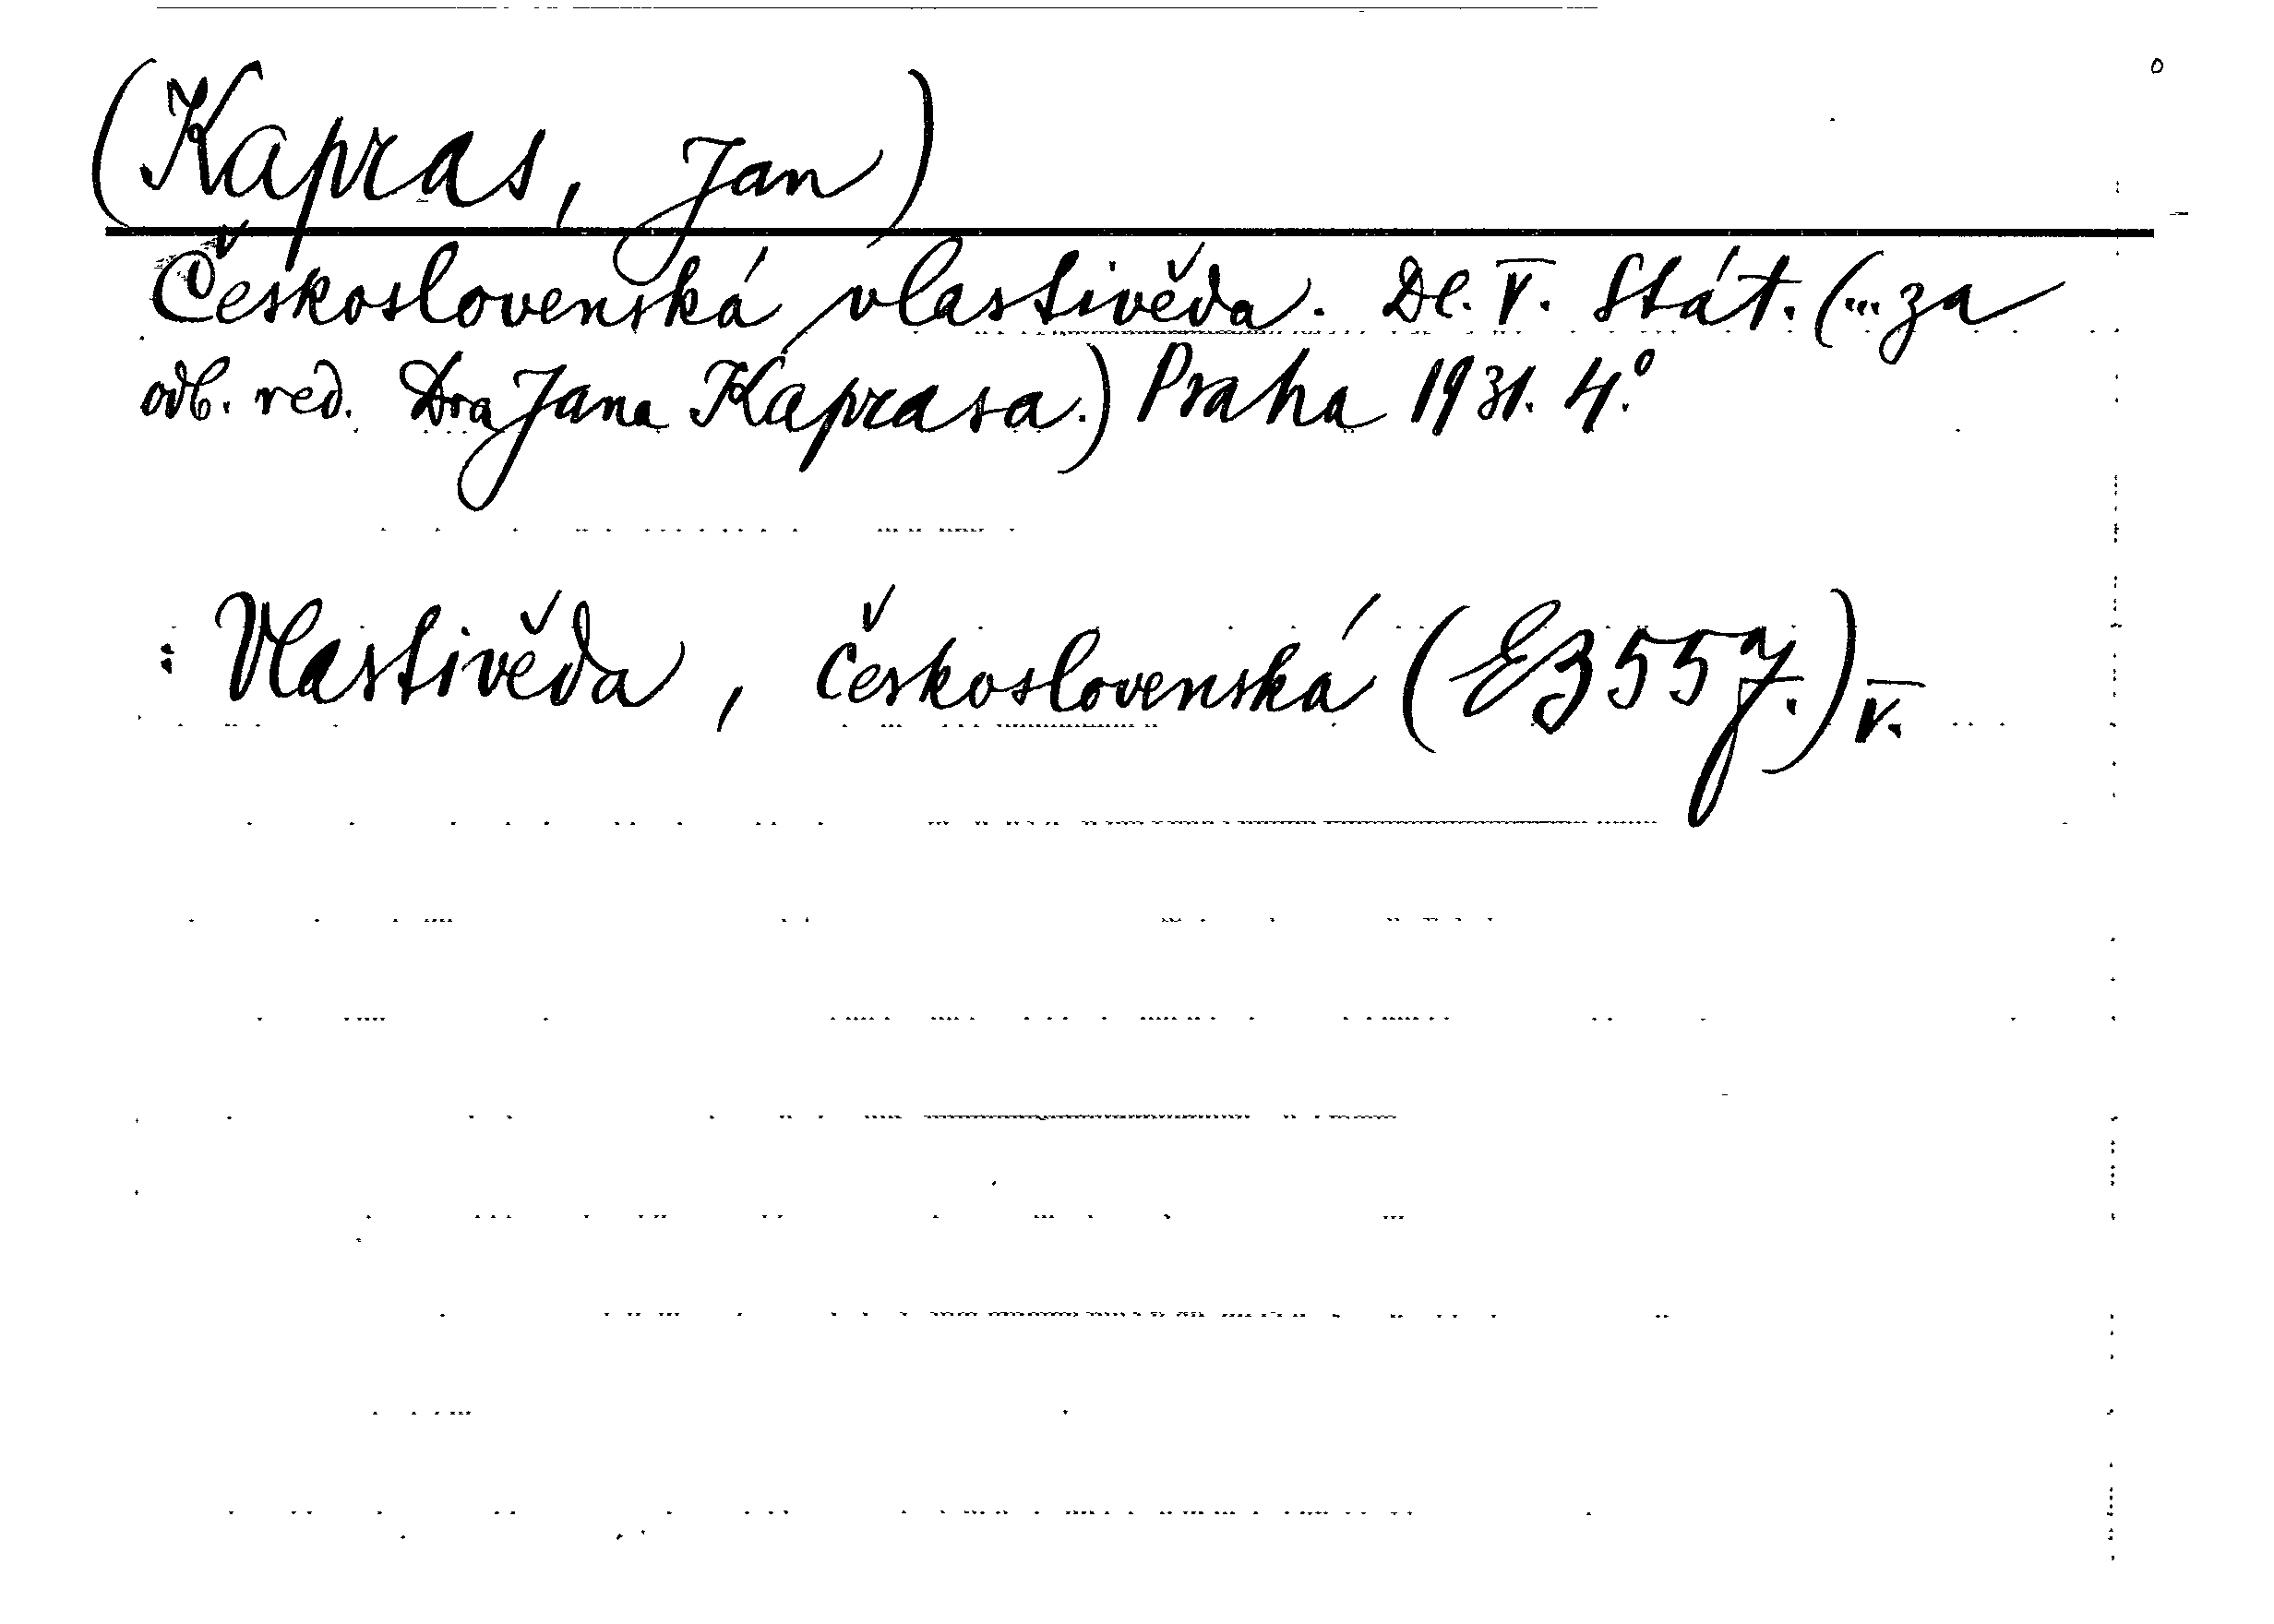 (Kapras, Jan)
Československá vlastivěda. Dl. V. Stát. (... za
odb. red. Dra Jana Kaprasa.) Praha 1931. 4.°
: Vlastivěda, československá (EB 557.) V.